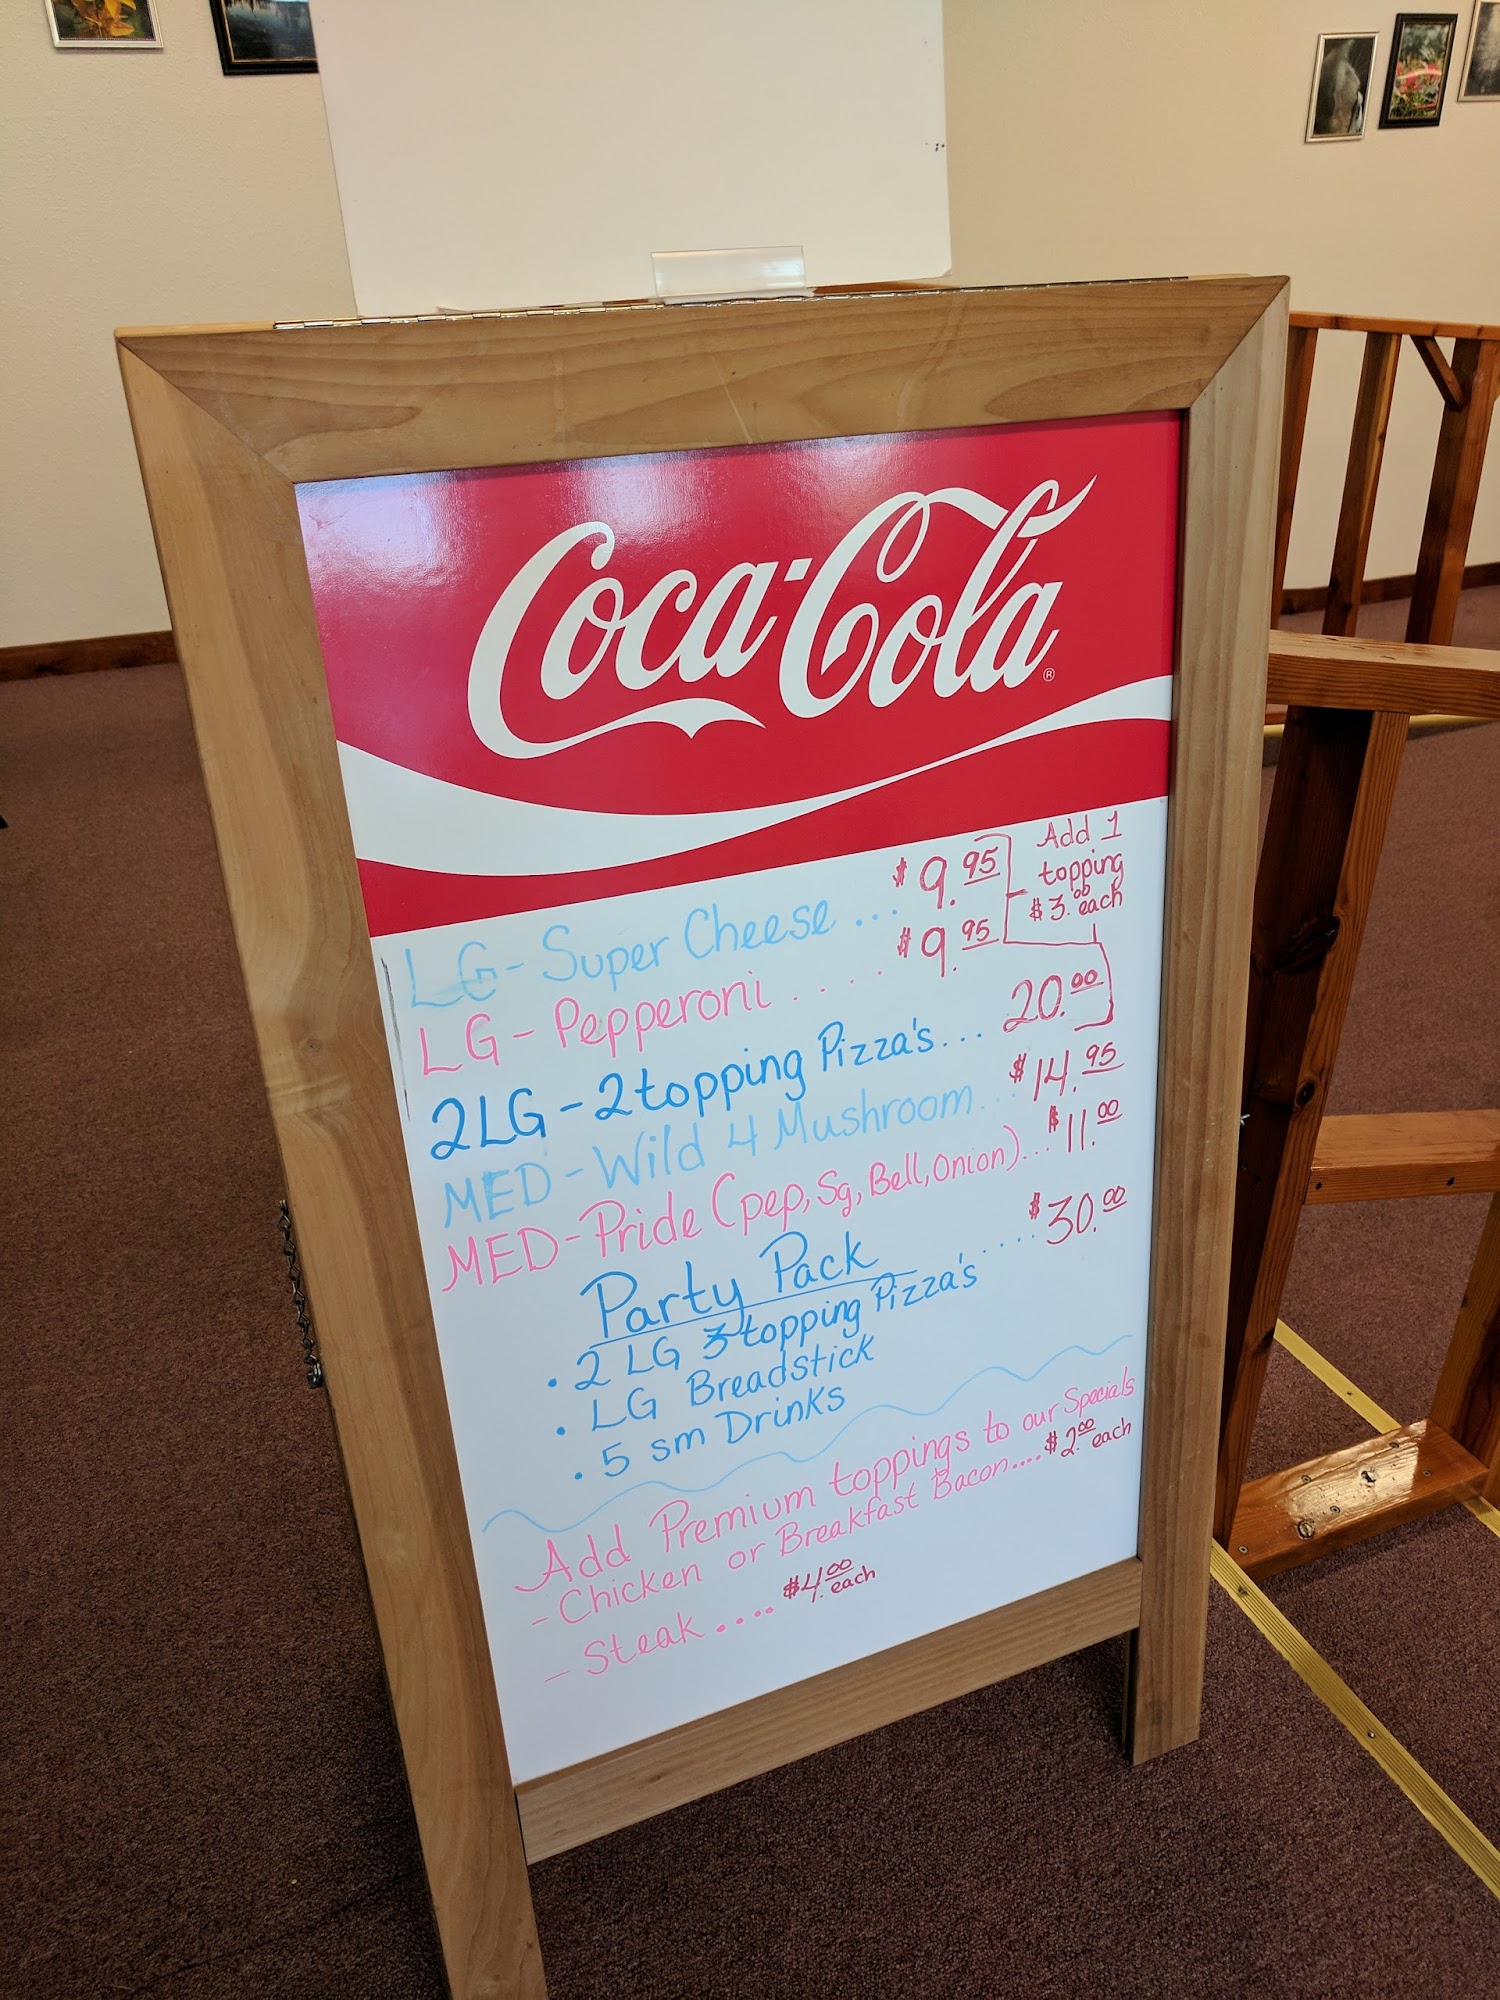 Coca-Cola ®
LG - Super Cheese ... $9.95
LG - Pepperoni .... $9.95
Add 1
topping
$3.00 each
2 LG - 2 topping Pizza's ... 20.00
MED - Wild 4 Mushroom ... $14.95
MED - Pride (pep, Sg, Bell, Onion) ... $11.00
Party Pack ..... $30.00
• 2 LG 3 topping Pizza's
• LG Breadstick
• 5 sm Drinks
Add Premium toppings to our Specials
- Chicken or Breakfast Bacon .... $2.00 each
- Steak .... $4.00 each